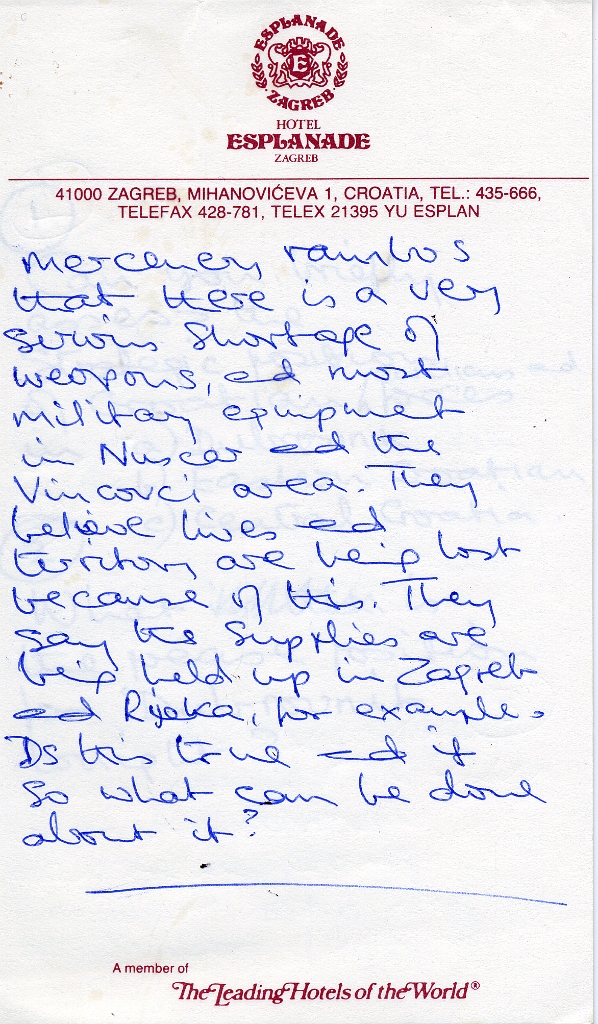 ESPLANADE
E
ZAGREB
HOTEL
ESPLANADE
ZAGREB
41000 ZAGREB, MIHANOVIĆEVA 1, CROATIA, TEL.: 435-666,
TELEFAX 428-781, TELEX 21395 YU ESPLAN
mercenery rambos
that there is a very
serious shortage of
weapons, ed most
military equipment
in Nuscar ed the
Vincovci area. They
believe lives ed
territory are being lost
because of this. They
say the supplies are
being held up in Zagreb
ed Rijeka, for example.
Is this true ed if
so what can be done
about it?
A member of
The Leading Hotels of the World®